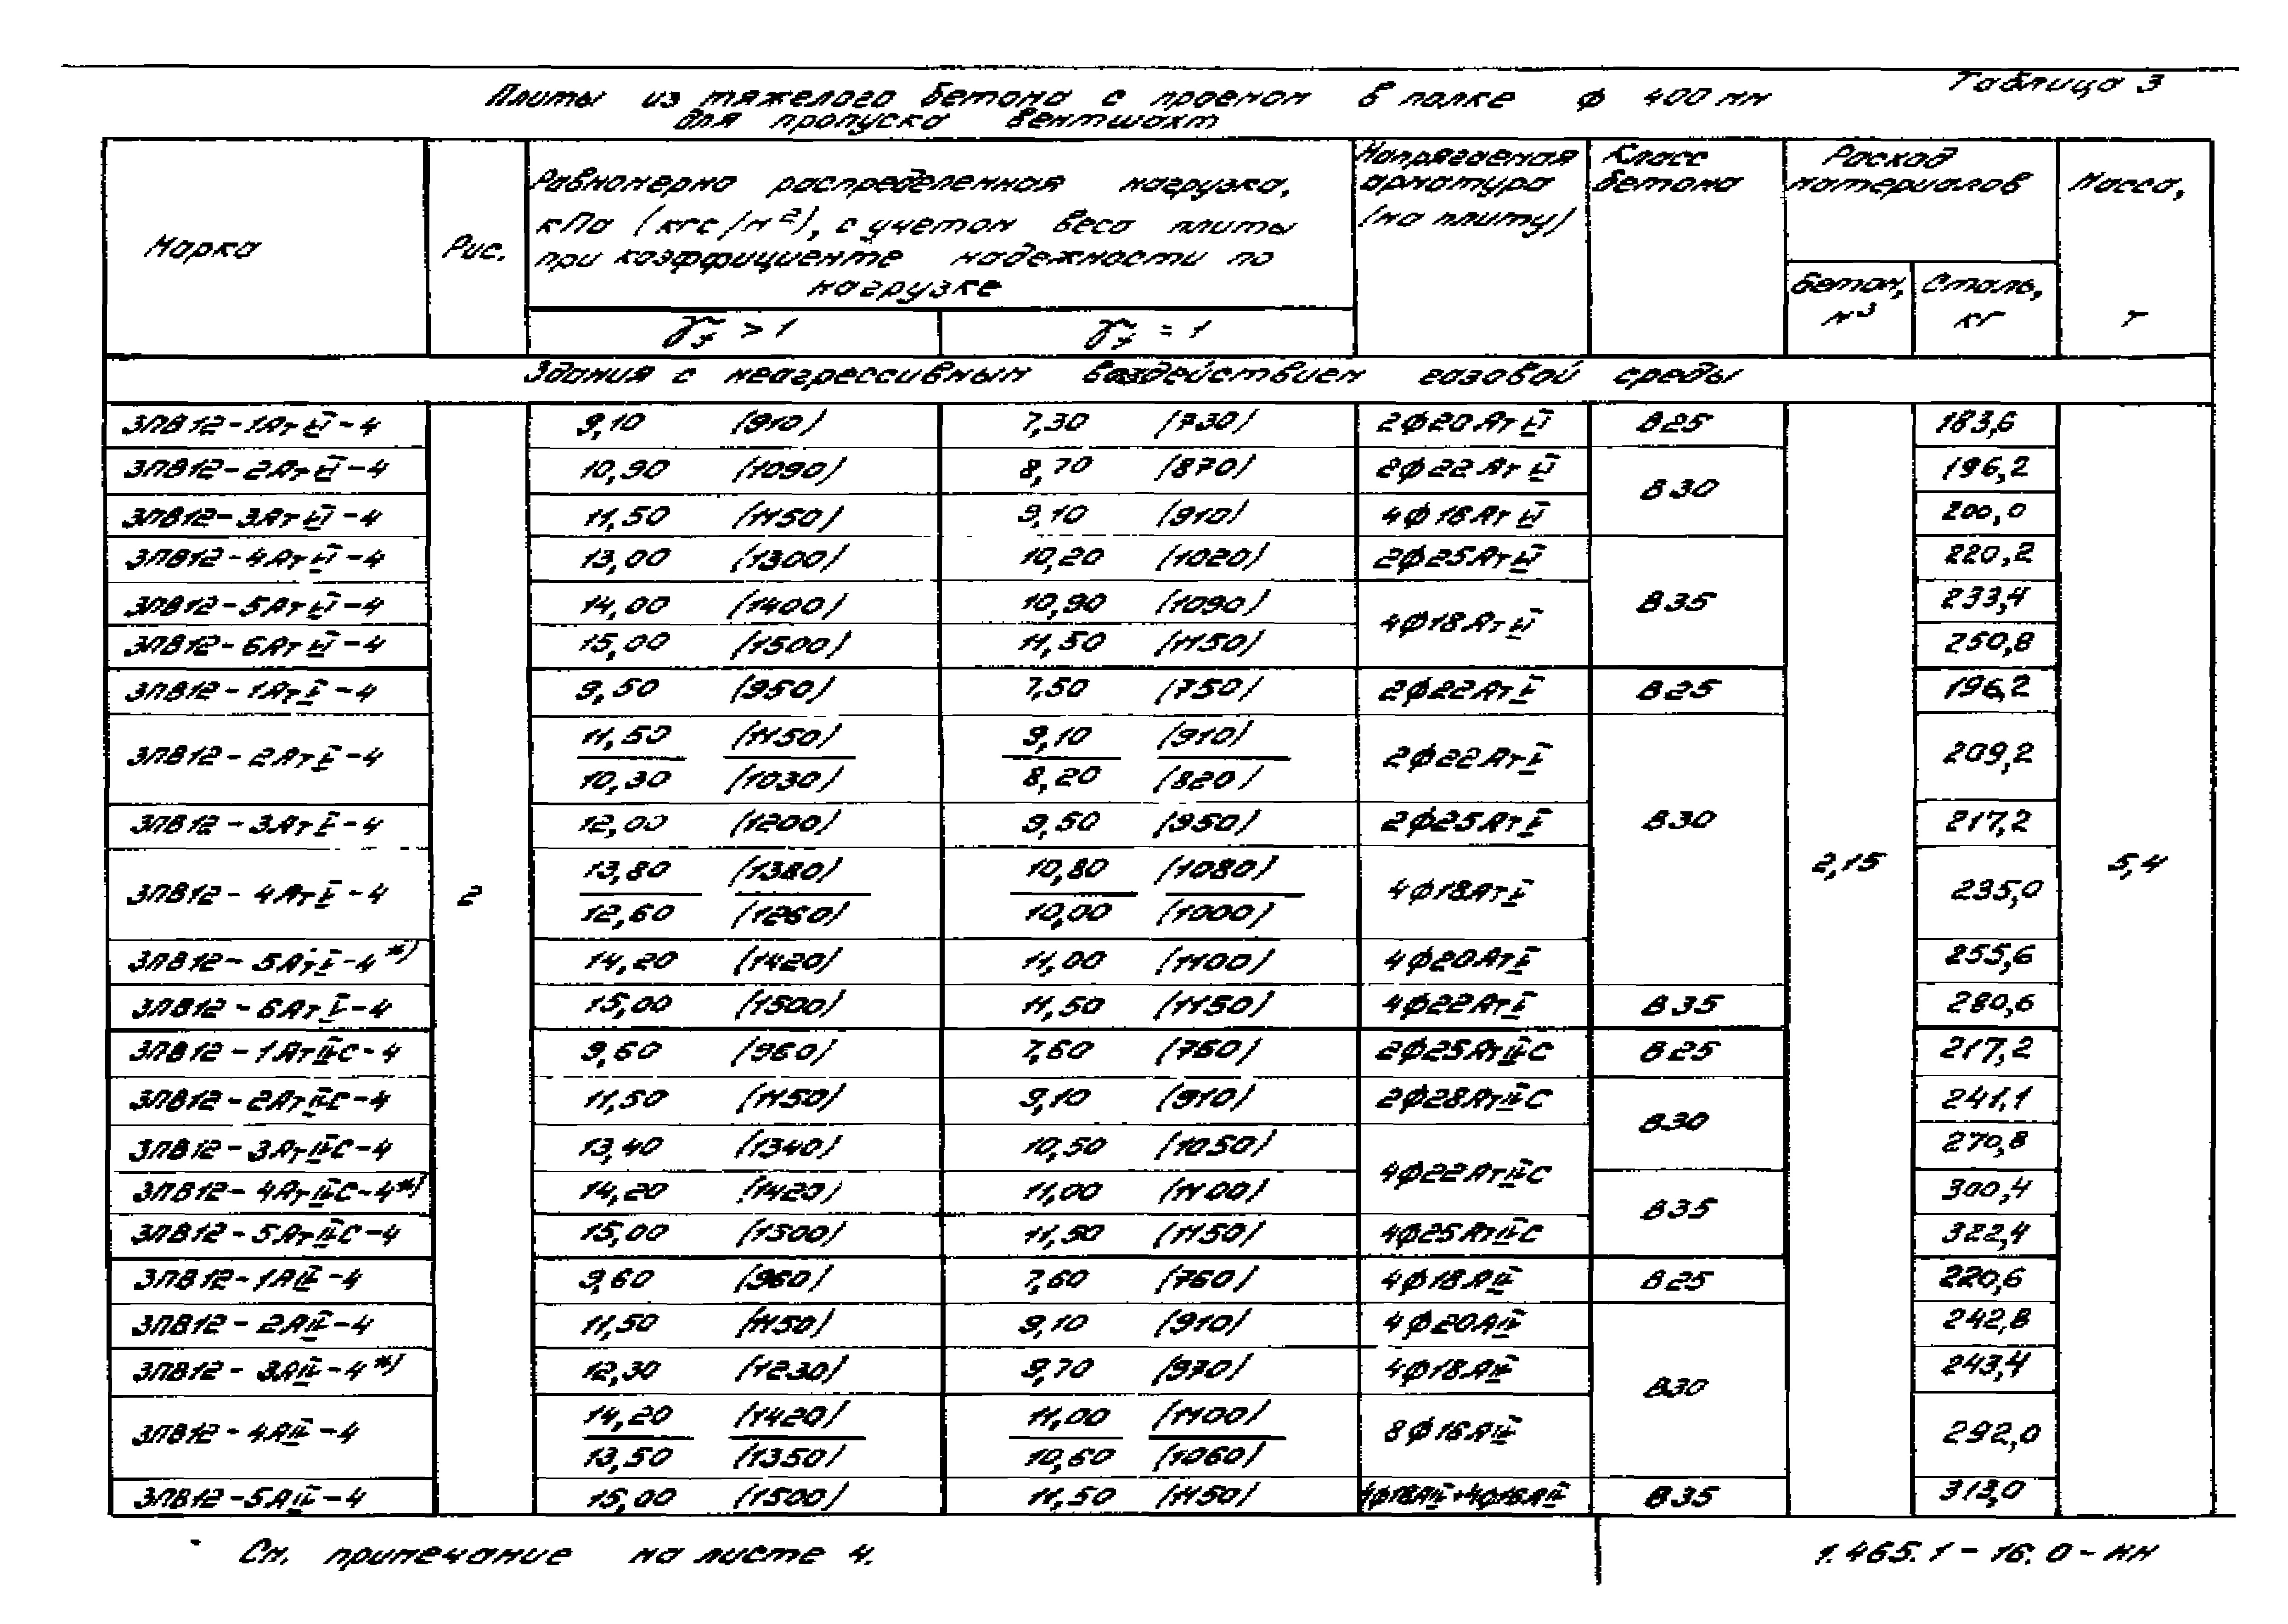 Таблица 3
Плиты из тяжелого бетона с проемом в полке ϕ 400 мм
для пропуска вентшахт
Марка
Рис.
Равномерно распределенная нагрузка,
кПа (кгс/м²), с учетом веса плиты
при коэффициенте надежности по
нагрузке
γf > 1
γf = 1
Напрягаемая
арматура
(на плиту)
Класс
бетона
Расход
материалов
Бетон,
м³
Сталь,
кг
Масса,
т
Здания с неагрессивным воздействием газовой среды
3ПВ12-1АтVI-4 9,10 (910) 7,30 (730) 2ϕ20АтVI В25 183,6
3ПВ12-2АтVI-4 10,90 (1090) 8,70 (870) 2ϕ22АтVI В30 196,2
3ПВ12-3АтVI-4 11,50 (1150) 9,10 (910) 4ϕ16АтVI 200,0
3ПВ12-4АтVI-4 13,00 (1300) 10,20 (1020) 2ϕ25АтVI 220,2
3ПВ12-5АтVI-4 14,00 (1400) 10,90 (1090) 4ϕ18АтVI В35 233,4
3ПВ12-6АтVI-4 15,00 (1500) 11,50 (1150) 250,8
3ПВ12-1АтV-4 9,50 (950) 7,50 (750) 2ϕ22АтV В25 196,2
3ПВ12-2АтV-4 11,50 (1150) 9,10 (910) 2ϕ22АтV 209,2
10,30 (1030) 8,20 (820)
3ПВ12-3АтV-4 12,00 (1200) 9,50 (950) 2ϕ25АтV В30 217,2
3ПВ12-4АтV-4 2 13,80 (1380) 10,80 (1080) 4ϕ18АтV 2,15 235,0 5,4
12,60 (1260) 10,00 (1000)
3ПВ12-5АтV-4*) 14,20 (1420) 11,00 (1100) 4ϕ20АтV 255,6
3ПВ12-6АтV-4 15,00 (1500) 11,50 (1150) 4ϕ22АтV В35 280,6
3ПВ12-1АтIVС-4 9,60 (960) 7,60 (760) 2ϕ25АтIVС В25 217,2
3ПВ12-2АтIVС-4 11,50 (1150) 9,10 (910) 2ϕ28АтIVС В30 241,1
3ПВ12-3АтIVС-4 13,40 (1340) 10,50 (1050) 4ϕ22АтIVС 270,8
3ПВ12-4АтIVС-4*) 14,20 (1420) 11,00 (1100) В35 300,4
3ПВ12-5АтIVС-4 15,00 (1500) 11,50 (1150) 4ϕ25АтIVС 322,4
3ПВ12-1АIV-4 9,60 (960) 7,60 (760) 4ϕ18АIV В25 220,6
3ПВ12-2АIV-4 11,50 (1150) 9,10 (910) 4ϕ20АIV 242,8
3ПВ12-3АIV-4*) 12,30 (1230) 9,70 (970) 4ϕ18АIV В30 243,4
3ПВ12-4АIV-4 14,20 (1420) 11,00 (1100) 8ϕ16АIV 292,0
13,50 (1350) 10,60 (1060)
3ПВ12-5АIV-4 15,00 (1500) 11,50 (1150) 4ϕ18АIV+4ϕ16АIV В35 313,0
См. примечание на листе 4.
1.465.1-16.0-НН